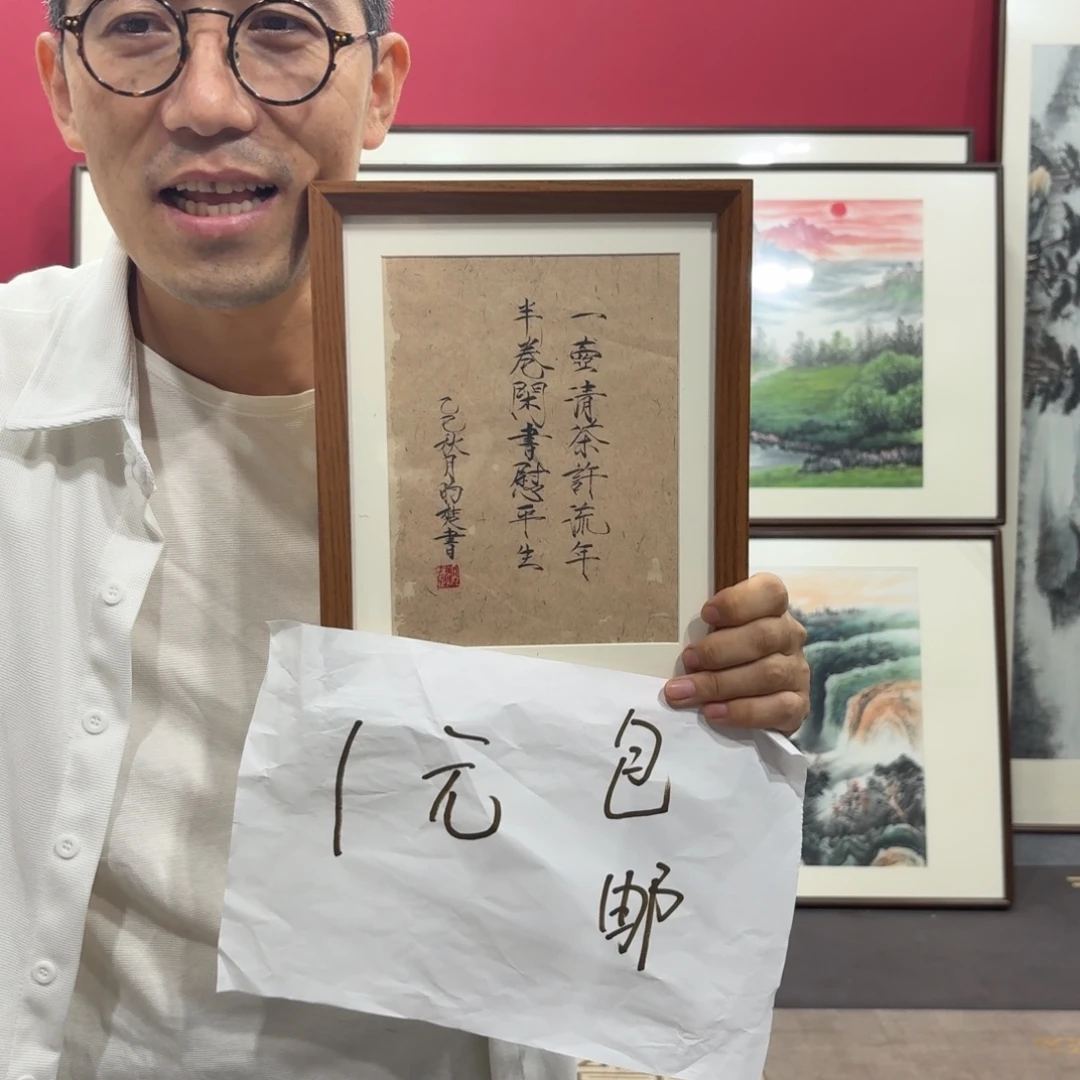 一壺清茶許流年
半卷閑書慰平生
乙巳秋月昀楚書
1元
包邮